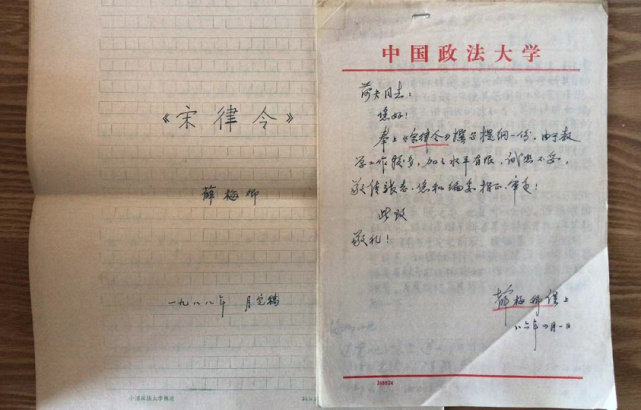 《宋律令》
薛梅卿
一九八八年 月完稿
中国政法大学
荷夫同志：
您好！
奉上《宋律令》撰写提纲一份，由于教
学工作较多，加之水平有限，诚恐不妥，
敬请张老、您和编委指正、审定！
此致
敬礼！
薛梅卿谨上
八六年四月一日